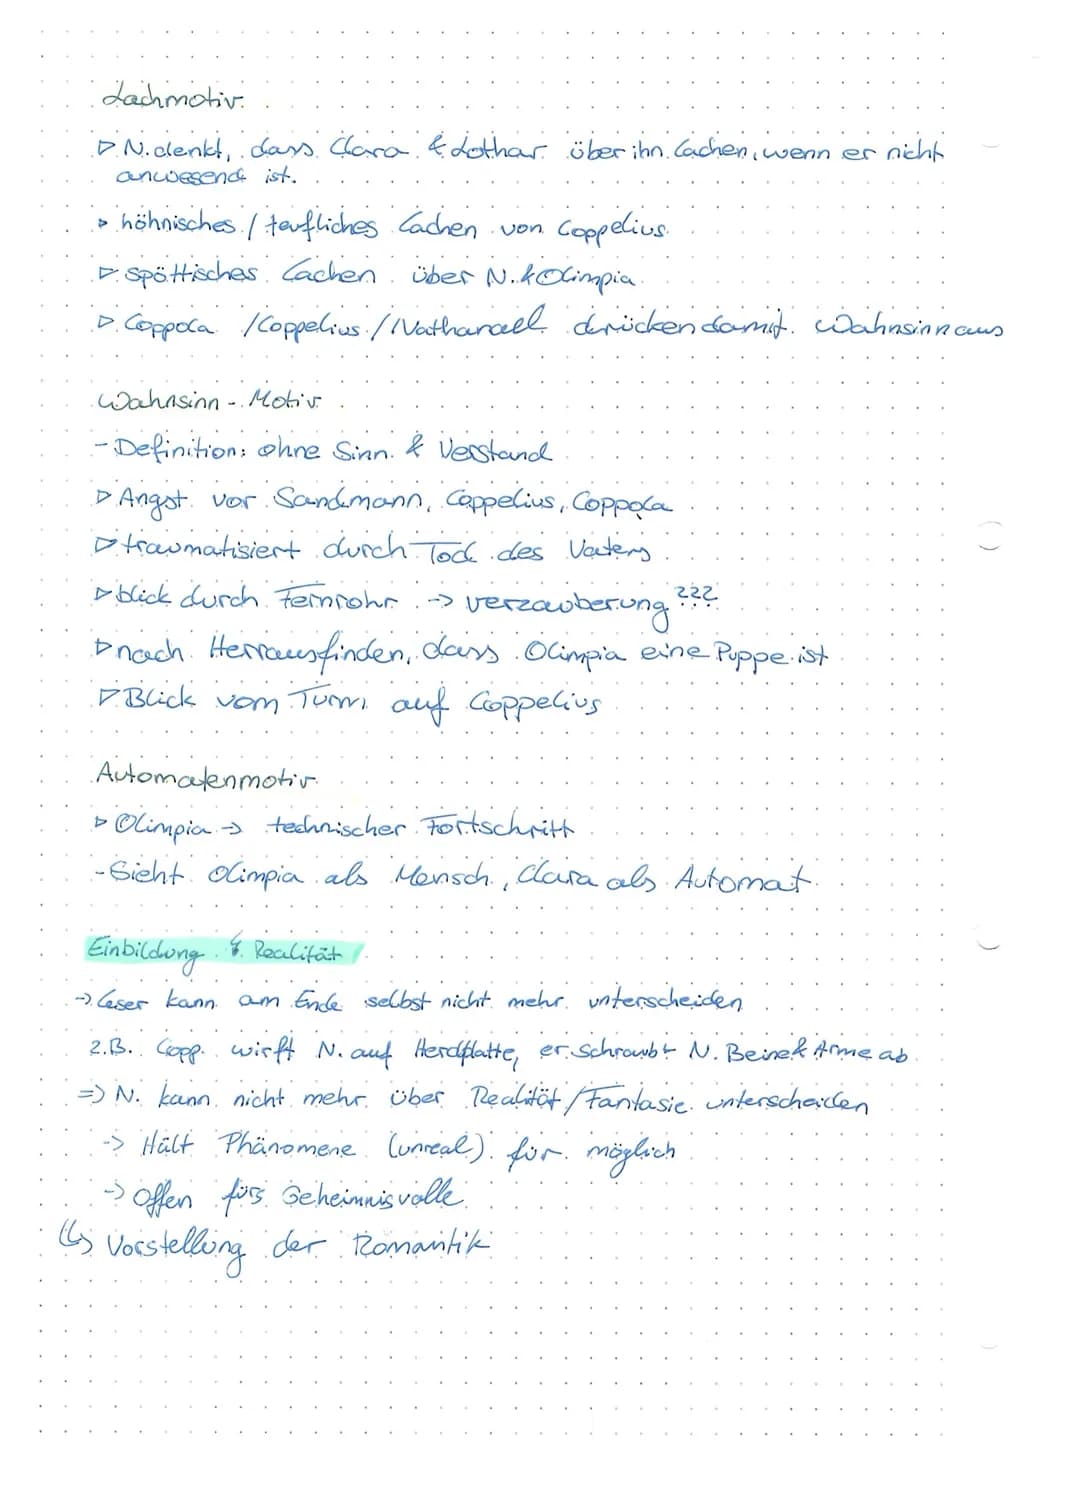 Lachmotiv
▷ N. denkt, dass Clara & Lothar über ihn lachen, wenn er nicht
anwesend ist.
▷ höhnisches / teufliches Lachen von Coppelius
▷ spöttisches Lachen über N. & Olimpia
▷ Coppola / Coppelius / Nathanael drücken damit Wahnsinn aus
Wahnsinn - Motiv
- Definition: ohne Sinn & Verstand
▷ Angst vor Sandmann, Coppelius, Coppola
▷ traumatisiert durch Tod des Vaters
▷ blick durch Fernrohr -> verzauberung ???
▷ nach Herrausfinden, dass Olimpia eine Puppe ist
▷ Blick vom Turm auf Coppelius
Automatenmotiv
▷ Olimpia -> technischer Fortschritt
- Sieht Olimpia als Mensch, Clara als Automat
Einbildung & Realität
-> Leser kann am Ende selbst nicht mehr unterscheiden
z.B. Copp. wirft N. auf Herdplatte, er schraubt N. Beine & Arme ab
=> N. kann nicht mehr über Realität / Fantasie unterscheiden
-> Hält Phänomene (unreal) für möglich
-> Offen fürs Geheimnisvolle
↳ Vorstellung der Romantik